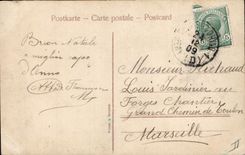 Postkarte - Carte postale - Postcard
Buon Natale
e miglior capo
d'anno
Monsieur Richaud
Louis Jardinier aux
Forges Chantier
Grand Chemin de Toulon
Marseille